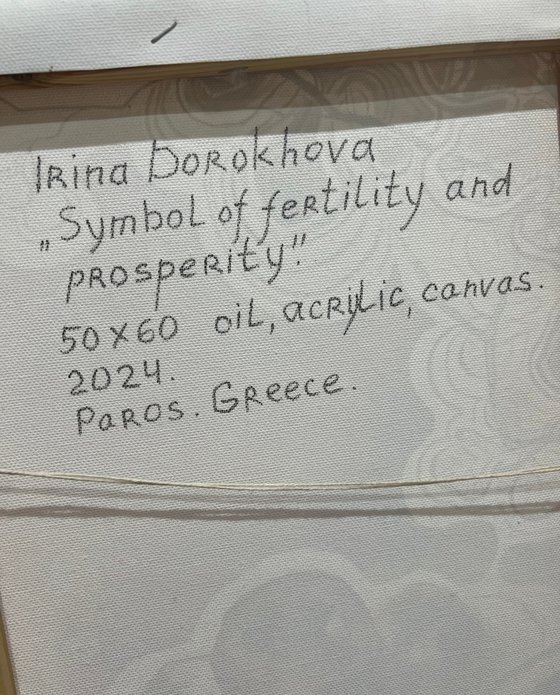 Irina Dorokhova
„Symbol of fertility and
prosperity".
50x60 oil, acrylic, canvas.
2024.
Paros. Greece.